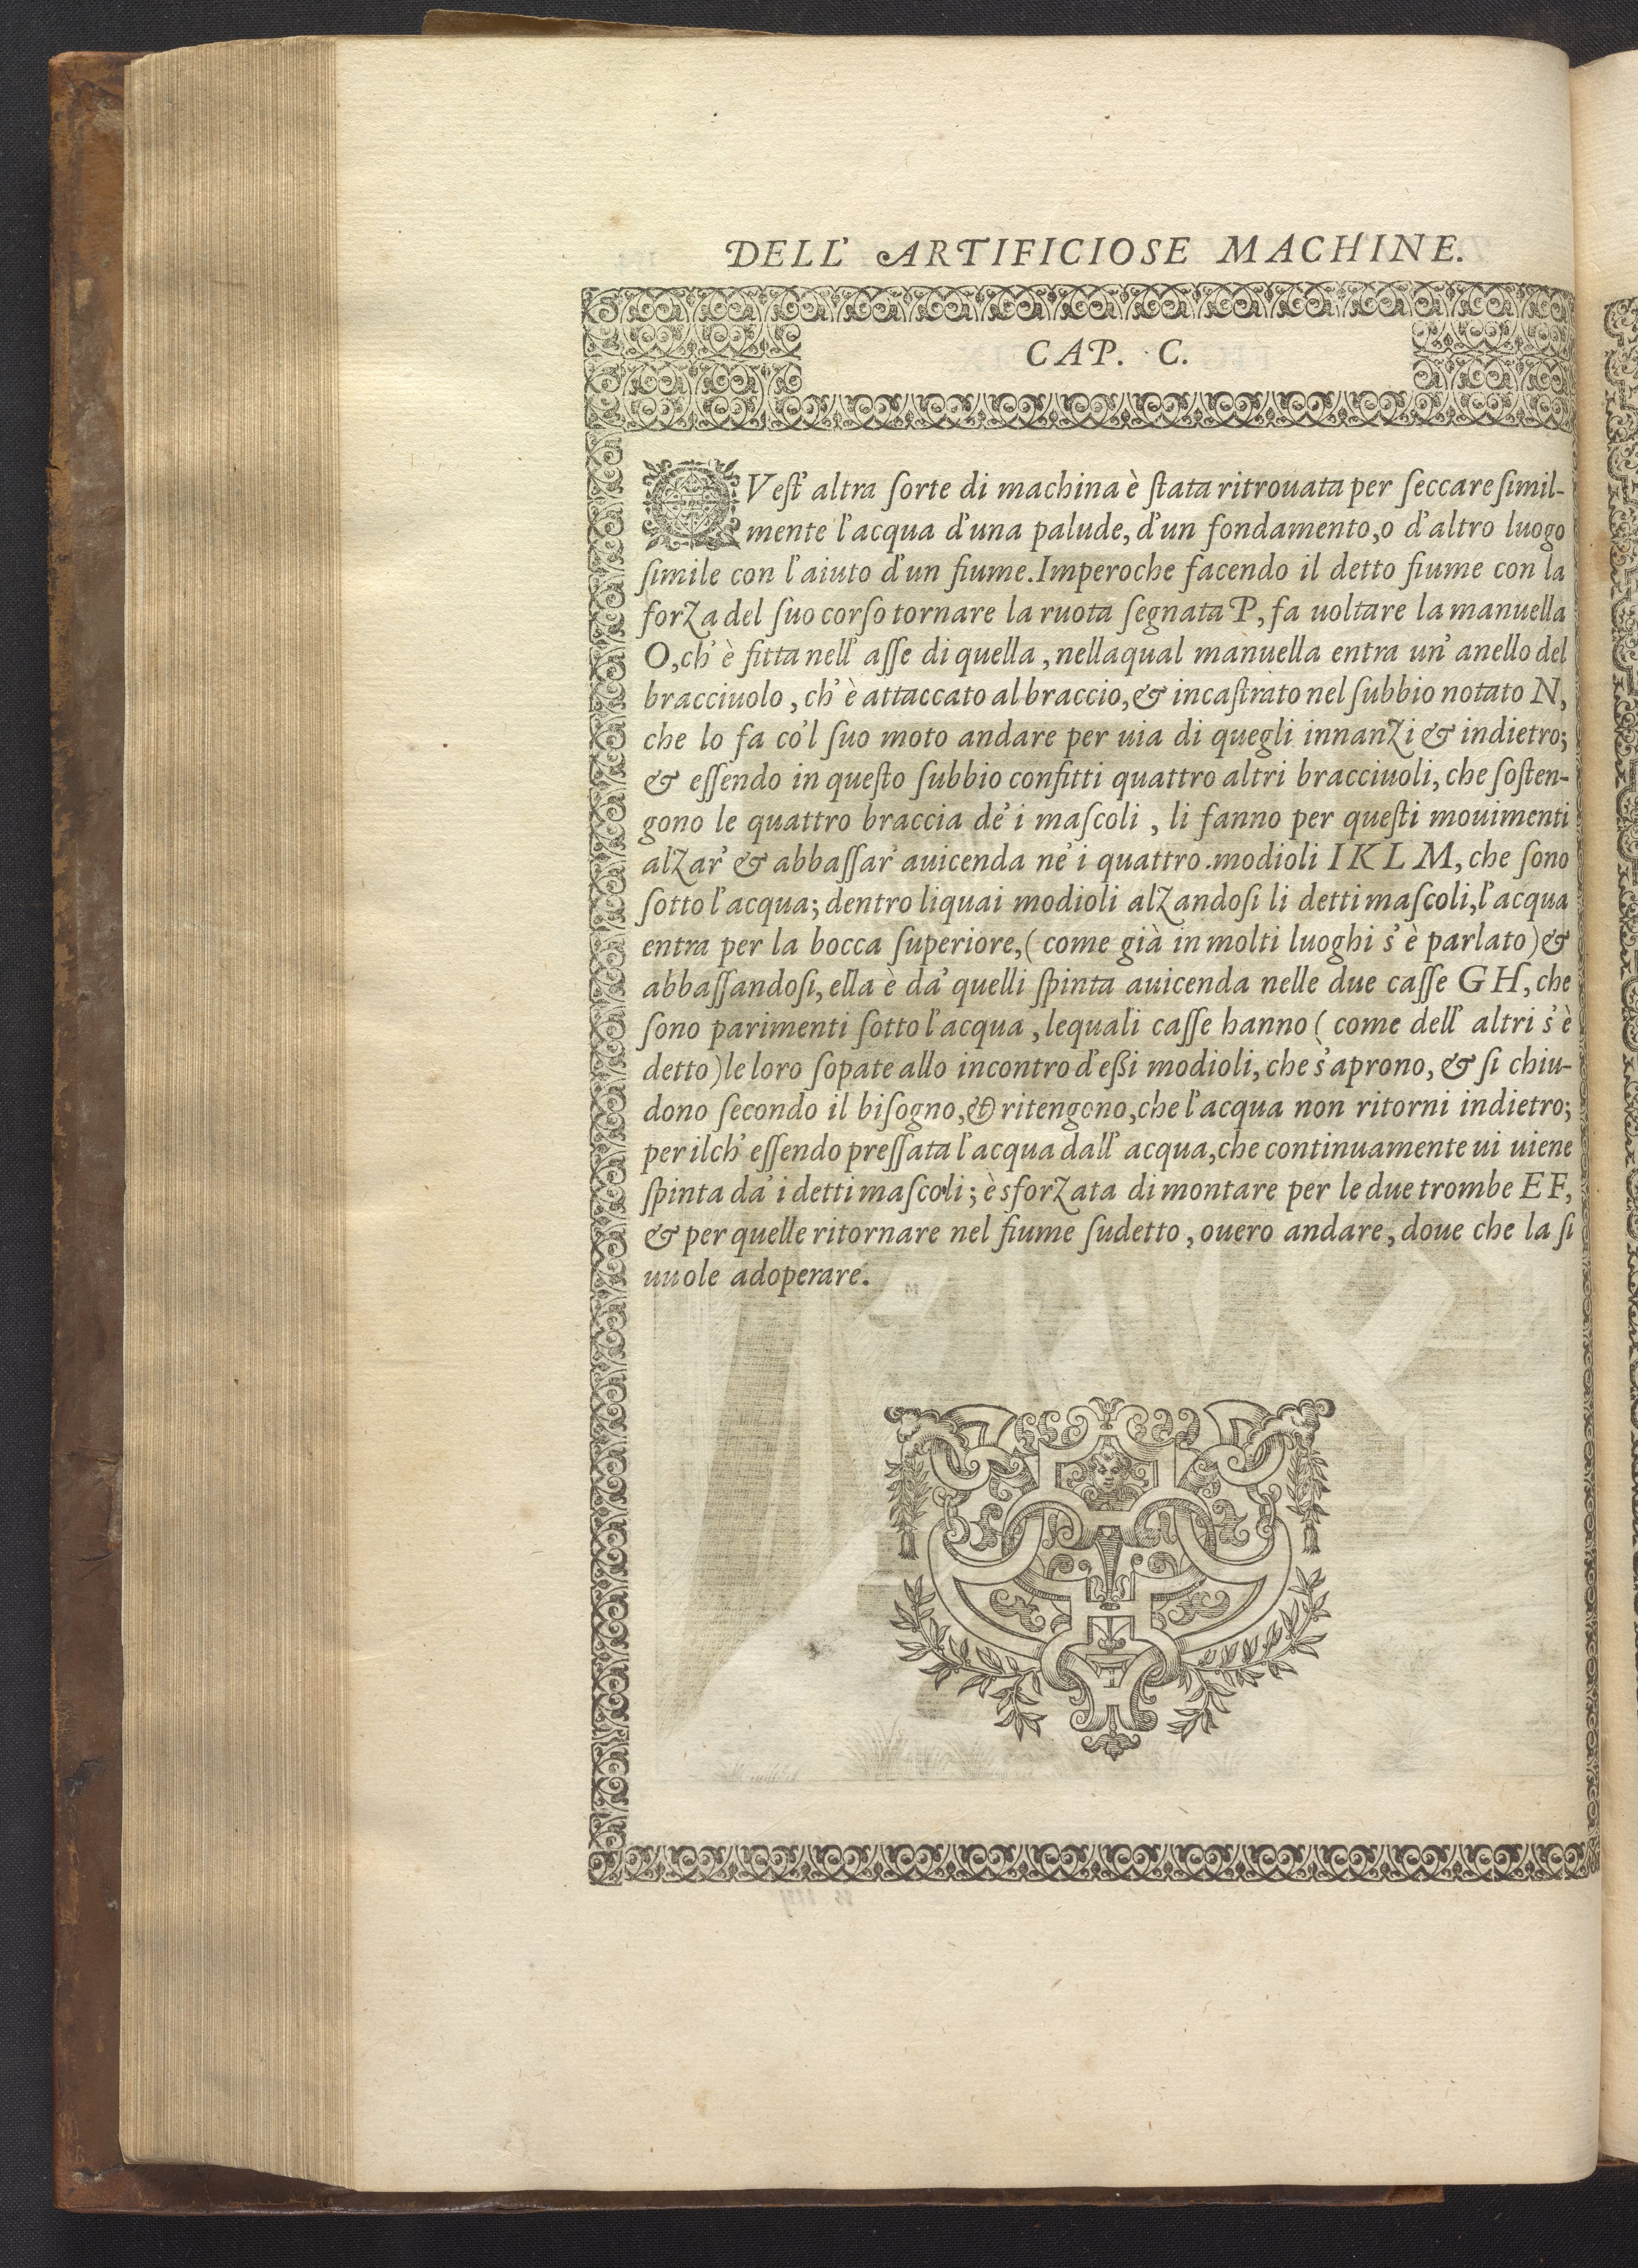 DELL' ARTIFICIOSE MACHINE.
CAP. C.
QVest' altra ſorte di machina è ſtata ritrouata per ſeccare ſimil-
mente l'acqua d'una palude, d'un fondamento, o d'altro luogo
ſimile con l'aiuto d'un fiume. Imperoche facendo il detto fiume con la
forza del ſuo corſo tornare la ruota ſegnata P, fa uoltare la manuella
O, ch' è fitta nell' aſſe di quella, nellaqual manuella entra un' anello del
bracciuolo, ch' è attaccato al braccio, & incaſtrato nel ſubbio notato N,
che lo fa co'l ſuo moto andare per uia di quegli innanzi & indietro;
& eſſendo in queſto ſubbio confitti quattro altri bracciuoli, che ſoſten-
gono le quattro braccia de' i maſcoli, li fanno per queſti mouimenti
alzar' & abbaſſar' auicenda ne' i quattro modioli I K L M, che ſono
ſotto l'acqua; dentro liquai modioli alzandoſi li detti maſcoli, l'acqua
entra per la bocca ſuperiore, (come già in molti luoghi s' è parlato) &
abbaſſandoſi, ella è da' quelli ſpinta auicenda nelle due caſſe G H, che
ſono parimenti ſotto l'acqua, lequali caſſe hanno (come dell' altri s' è
detto) le loro ſopate allo incontro d'eßi modioli, che s'aprono, & ſi chiu-
dono ſecondo il biſogno, & ritengono, che l'acqua non ritorni indietro;
perilch' eſſendo preſſata l'acqua dall' acqua, che continuamente ui uiene
ſpinta da' i detti maſcoli; è sforzata di montare per le due trombe E F,
& per quelle ritornare nel fiume ſudetto, ouero andare, doue che la ſi
uuole adoperare.